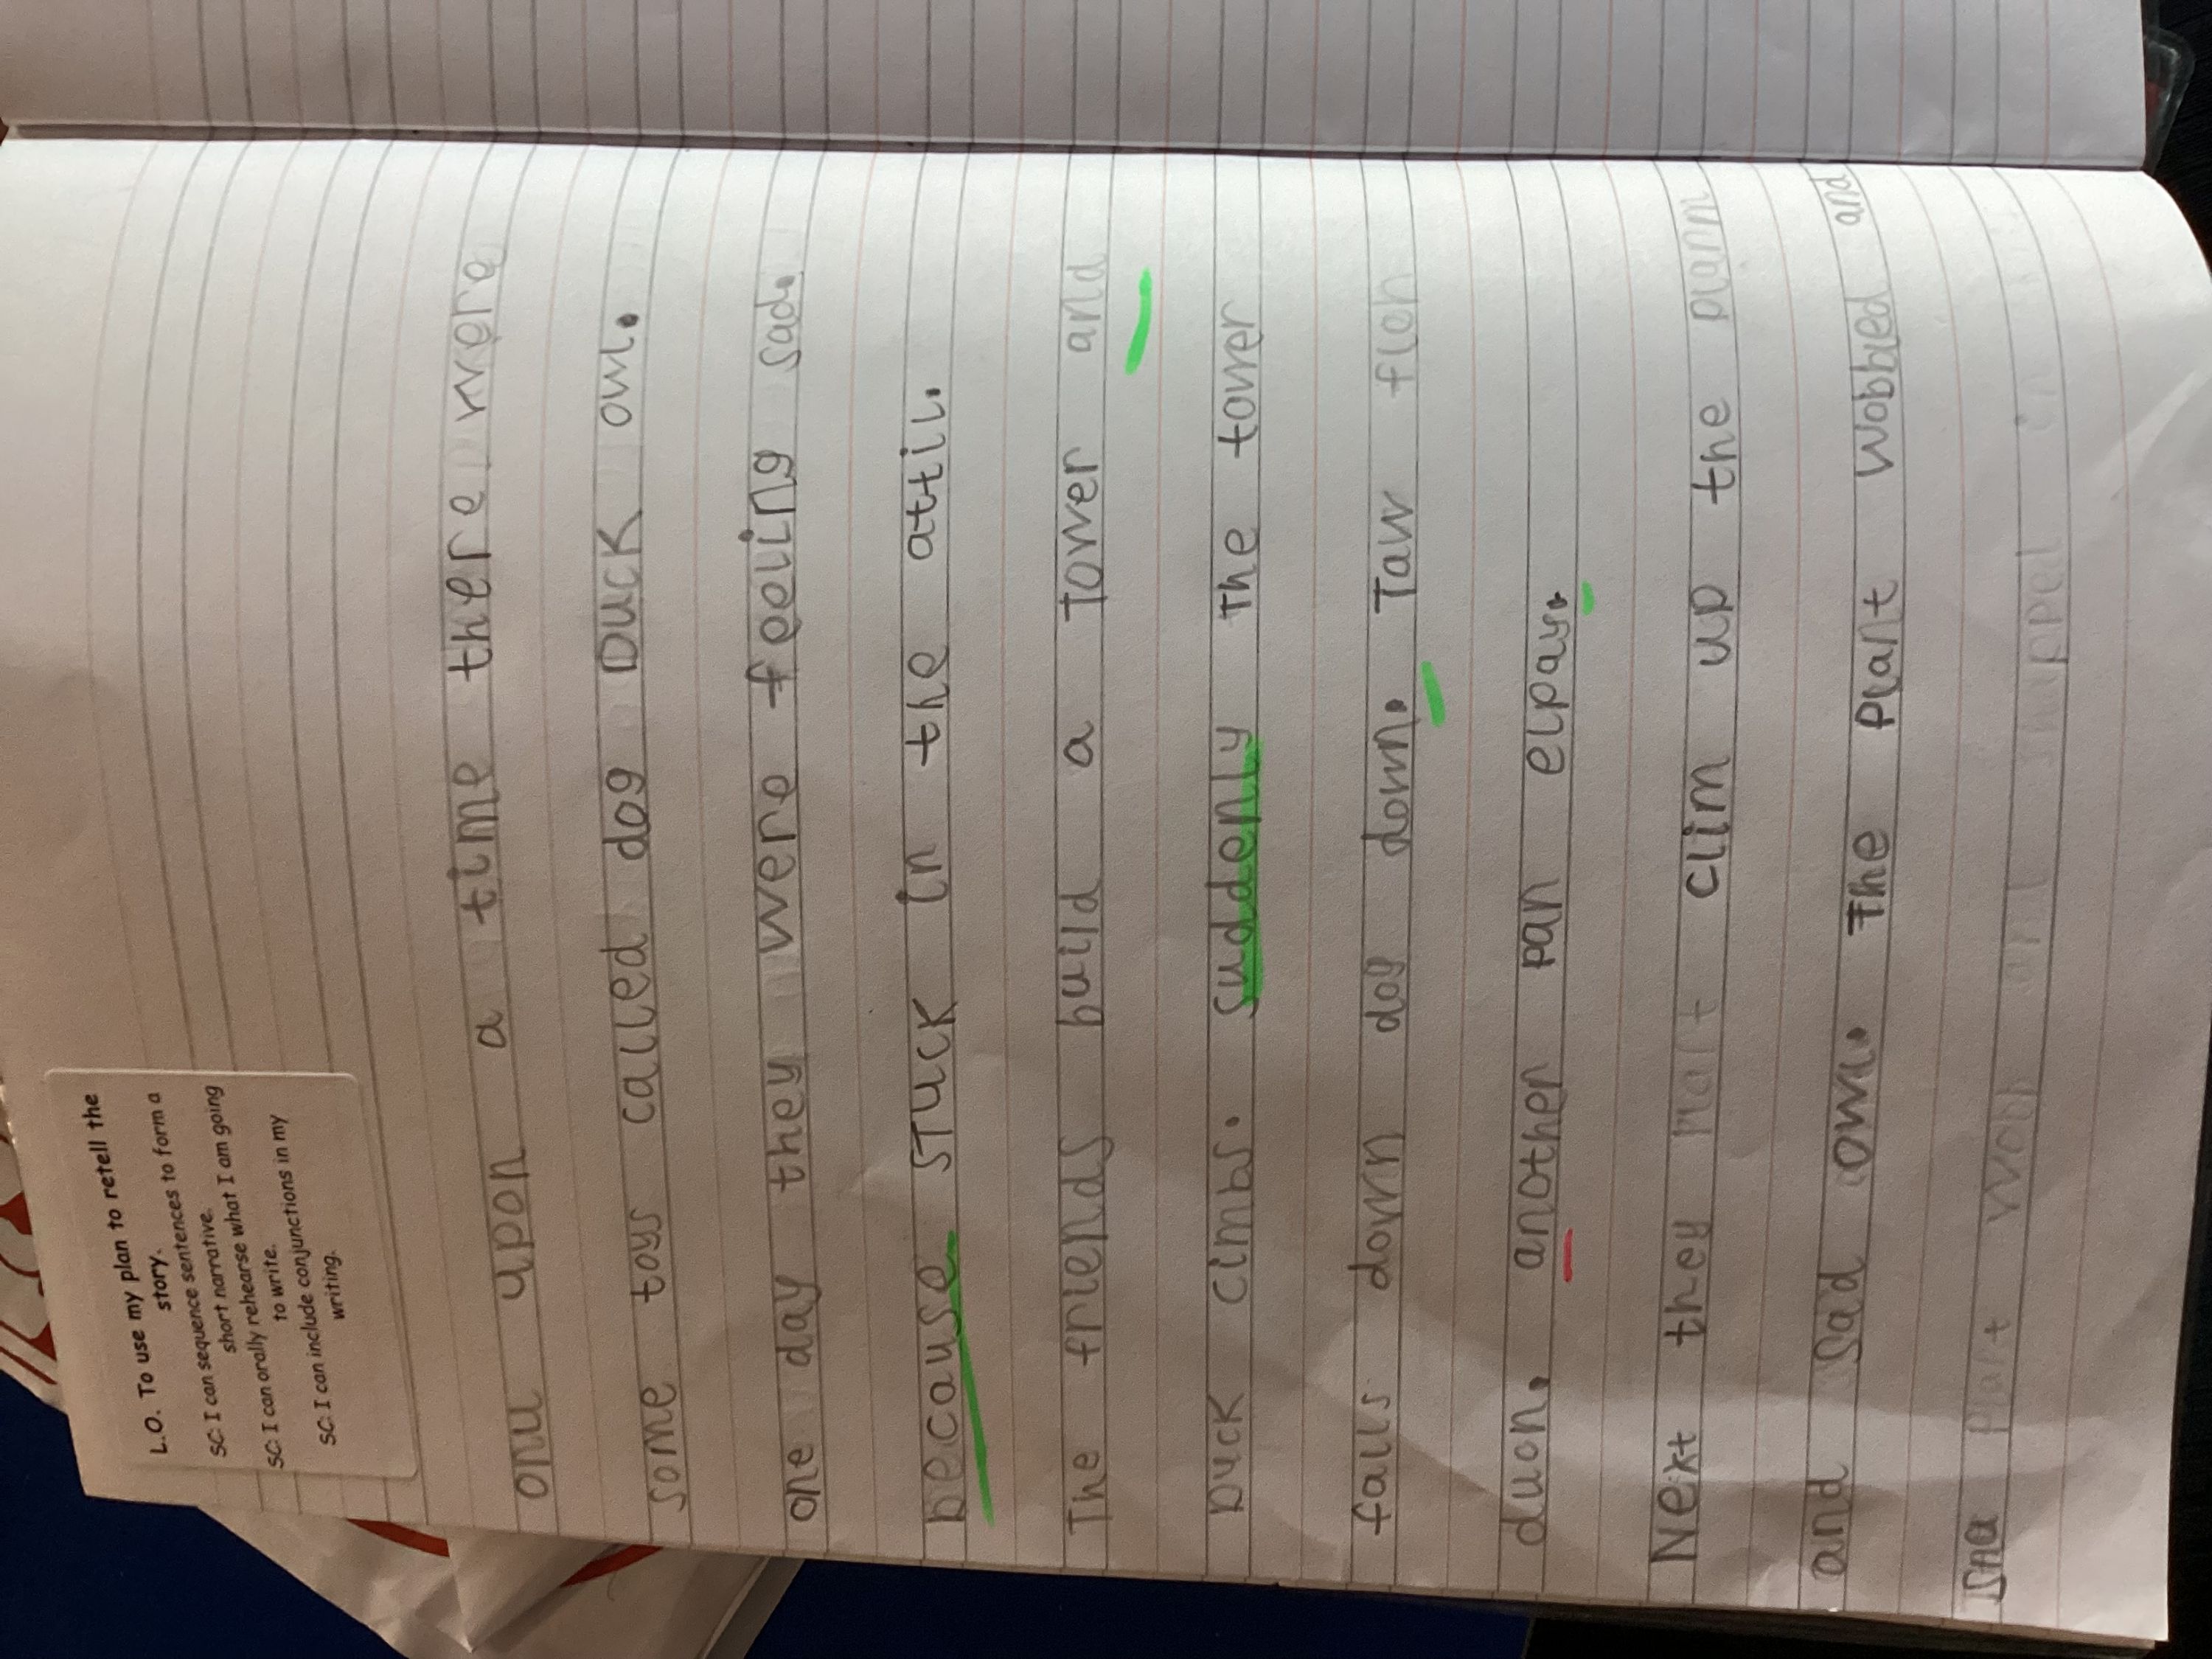 L.O. To use my plan to retell the
story.
SC: I can sequence sentences to form a
short narrative.
SC: I can orally rehearse what I am going
to write.
SC: I can include conjunctions in my
writing.
onu upon a time there were
some toys called dog Duck owl.
one day they were feeling sad.
because STuck in the attic.
The friends build a Tower and
Duck cimbs. suddenly The tower
falls down dog down. Taw fleh
duon. another pan elpay.
Next they clim up the
and sad owl. The Plant wobbled and
Plant